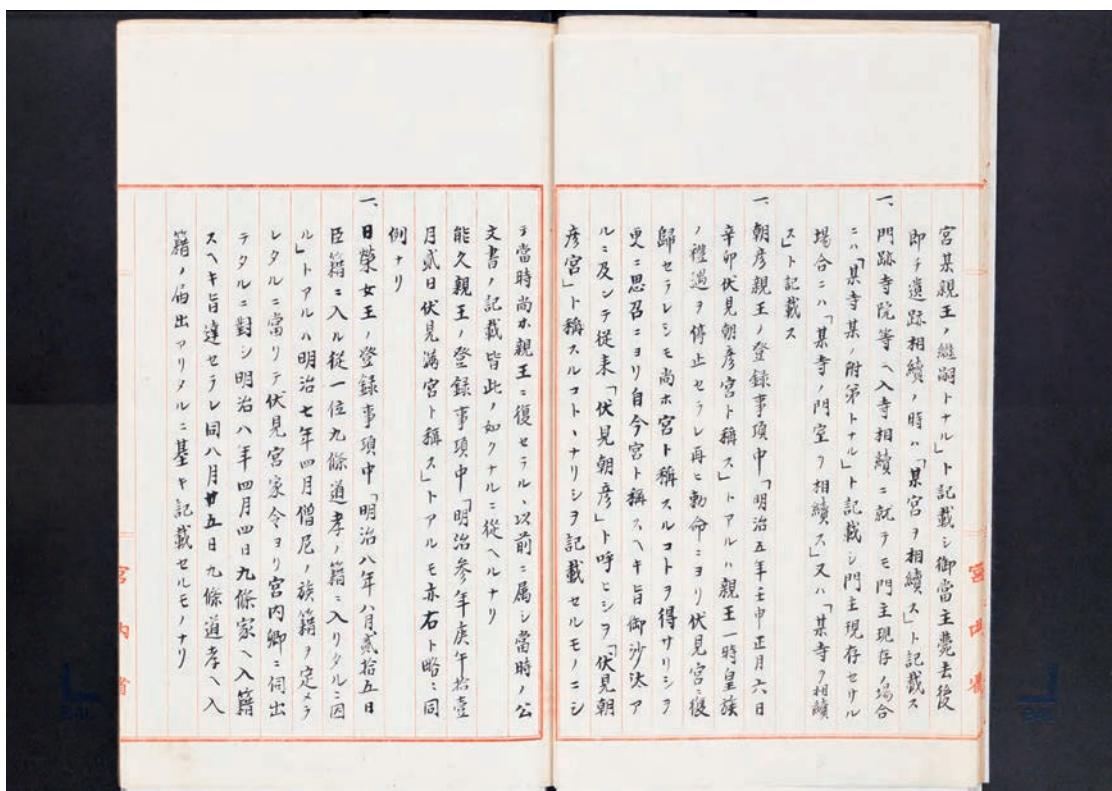 宮某親王ノ繼嗣トナル」ト記載シ御當主薨去後
即チ遺跡相續ノ時ハ「某宮ヲ相續ス」ト記載ス
一、門跡寺院等ヘ入寺相續ニ就テモ門主現存ノ場合
ニハ「某寺某ノ附第トナル」ト記載シ門主現存セサル
場合ニハ「某寺ノ門室ヲ相續ス」又ハ「某寺ヲ相續
ス」ト記載ス
一、朝彦親王ノ登録事項中「明治五年壬申正月六日
辛卯伏見朝彦宮ト稱ス」トアルハ親王一時皇族
ノ禮遇ヲ停止セラレ再ヒ勅命ニヨリ伏見宮ニ復
歸セラレシモ尚ホ宮ト稱スルコトヲ得サリシヲ
更ニ思召ニヨリ自今宮ト稱スヘキ旨御沙汰ア
ルニ及ンテ從来「伏見朝彦」ト呼ヒシヲ「伏見朝
彦宮」ト稱スルコトヽナリシヲ記載セルモノニシ
宮内省
テ當時尚ホ親王ニ復セラルヽ以前ニ属シ當時ノ公
文書ノ記載皆此ノ如クナルニ從ヘルナリ
能久親王ノ登録事項中「明治参年庚午拾壹
月貳日伏見満宮ト稱ス」トアルモ亦右ト略ニ同
例ナリ
一、日榮女王ノ登録事項中「明治八年八月貳拾五日
臣籍ニ入ル從一位九條道孝ノ籍ニ入リタルニ因
ル」トアルハ明治七年四月僧尼ノ族籍ヲ定メラ
レタルニ當リテ伏見宮家令ヨリ宮内卿ニ伺出
テタルニ對シ明治八年四月四日九條家ヘ入籍
スヘキ旨達セラレ同八月廿五日九條道孝ヘ入
籍ノ届出アリタルニ基キ記載セルモノナリ
宮内省